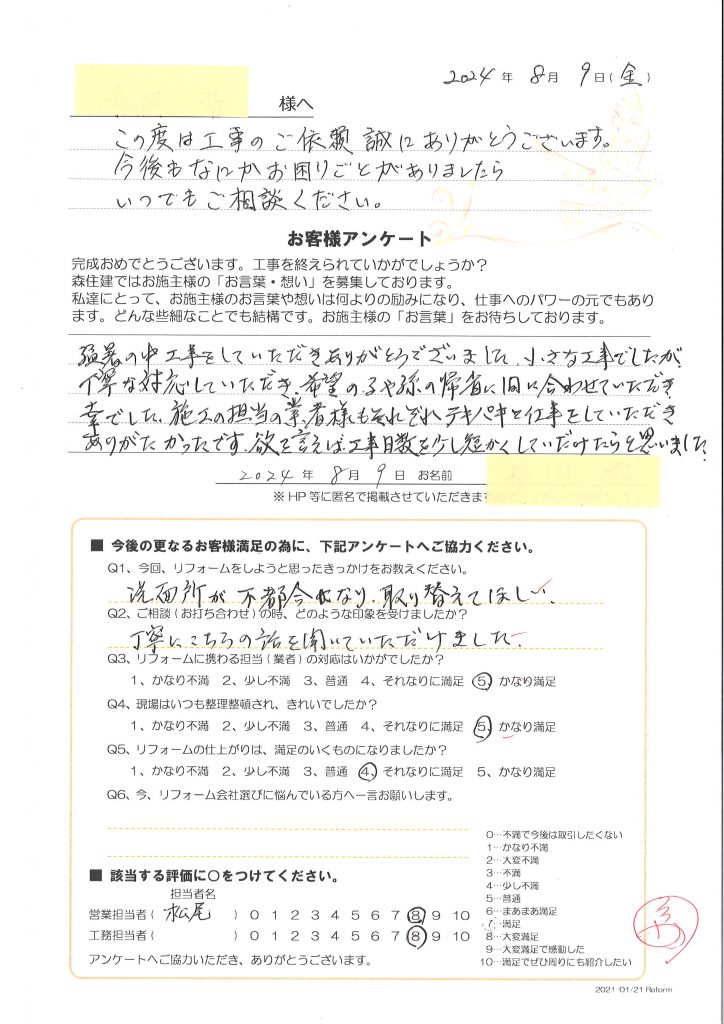 2024年 8月 9日(金)
様へ
この度は工事のご依頼誠にありがとうございます。
今後もなにかお困りごとがありましたら
いつでもご相談ください。
お客様アンケート
完成おめでとうございます。工事を終えられていかがでしょうか?
森住建ではお施主様の「お言葉・想い」を募集しております。
私達にとって、お施主様のお言葉や想いは何よりの励みになり、仕事へのパワーの元でもあり
ます。どんな些細なことでも結構です。お施主様の「お言葉」をお待ちしております。
猛暑の中工事をしていただきありがとうございました。小さな工事でしたが、
丁寧な対応していただき、希望の子や孫の帰省に間に合わせていただき
幸でした。施工の担当の業者様もそれぞれテキパキと仕事をしていただき
ありがたかったです。欲を言えば、工事日数を少し短かくしていだけたらと思いました。
2024年 8月 9日 お名前
※HP等に匿名で掲載させていただきます
■ 今後の更なるお客様満足の為に、下記アンケートへご協力ください。
Q1、今回、リフォームをしようと思ったきっかけをお教えください。
洗面所が不都合になり、取り替えてほしい。
Q2、ご相談(お打ち合わせ)の時、どのような印象を受けましたか?
丁寧にこちらの話を聞いていただけました。
Q3、リフォームに携わる担当(業者)の対応はいかがでしたか?
1、かなり不満 2、少し不満 3、普通 4、それなりに満足 5、かなり満足
Q4、現場はいつも整理整頓され、きれいでしたか?
1、かなり不満 2、少し不満 3、普通 4、それなりに満足 5、かなり満足
Q5、リフォームの仕上がりは、満足のいくものになりましたか?
1、かなり不満 2、少し不満 3、普通 4、それなりに満足 5、かなり満足
Q6、今、リフォーム会社選びに悩んでいる方へ一言お願いします。
■ 該当する評価に○をつけてください。
担当者名
営業担当者( 松尾 ) 0 1 2 3 4 5 6 7 8 9 10
工務担当者( ) 0 1 2 3 4 5 6 7 8 9 10
アンケートへご協力いただき、ありがとうございます。
0…不満で今後は取引したくない
1…かなり不満
2…大変不満
3…不満
4…少し不満
5…普通
6…まあまあ満足
7…満足
8…大変満足
9…大変満足で感動した
10…満足でぜひ周りにも紹介したい
2021 01/21 Reform